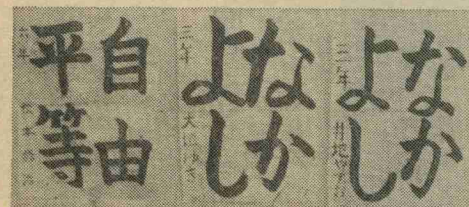 なか
よし
三年
なか
よし
三年
自由
平等
六年